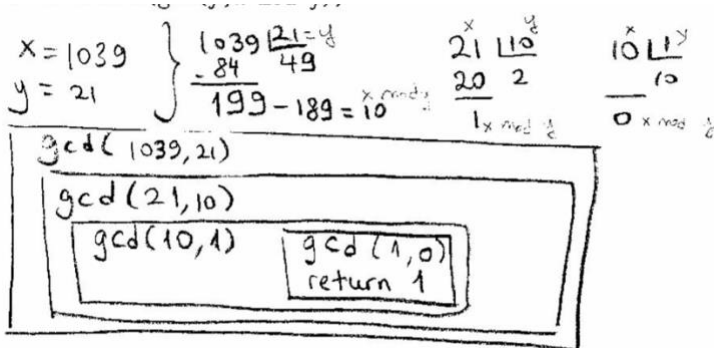 x = 1039
y = 21
1039 21 = y
- 84 49
199 - 189 = 10 x mod y
x y
21 10
20 2
1 x mod y
x y
10 1
10
0 x mod y
gcd( 1039, 21)
gcd (21, 10)
gcd(10, 1)
gcd (1, 0)
return 1